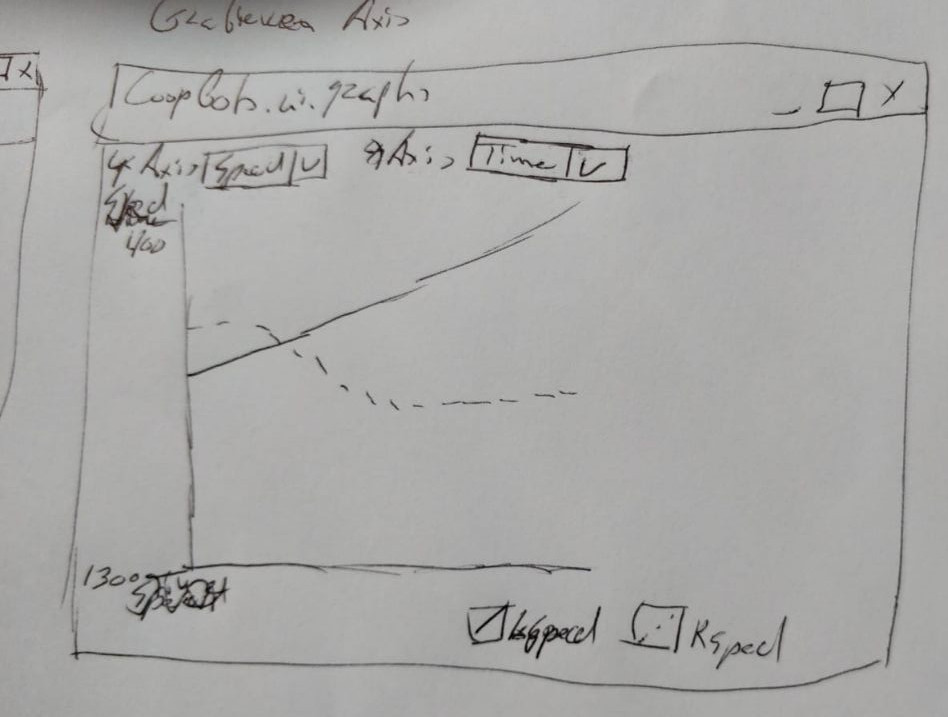 Axis
X
Coopbots.vi.graphs X
Y Axis Speed V X Axis Time V
Speed
400
1300
LSpeed RSped